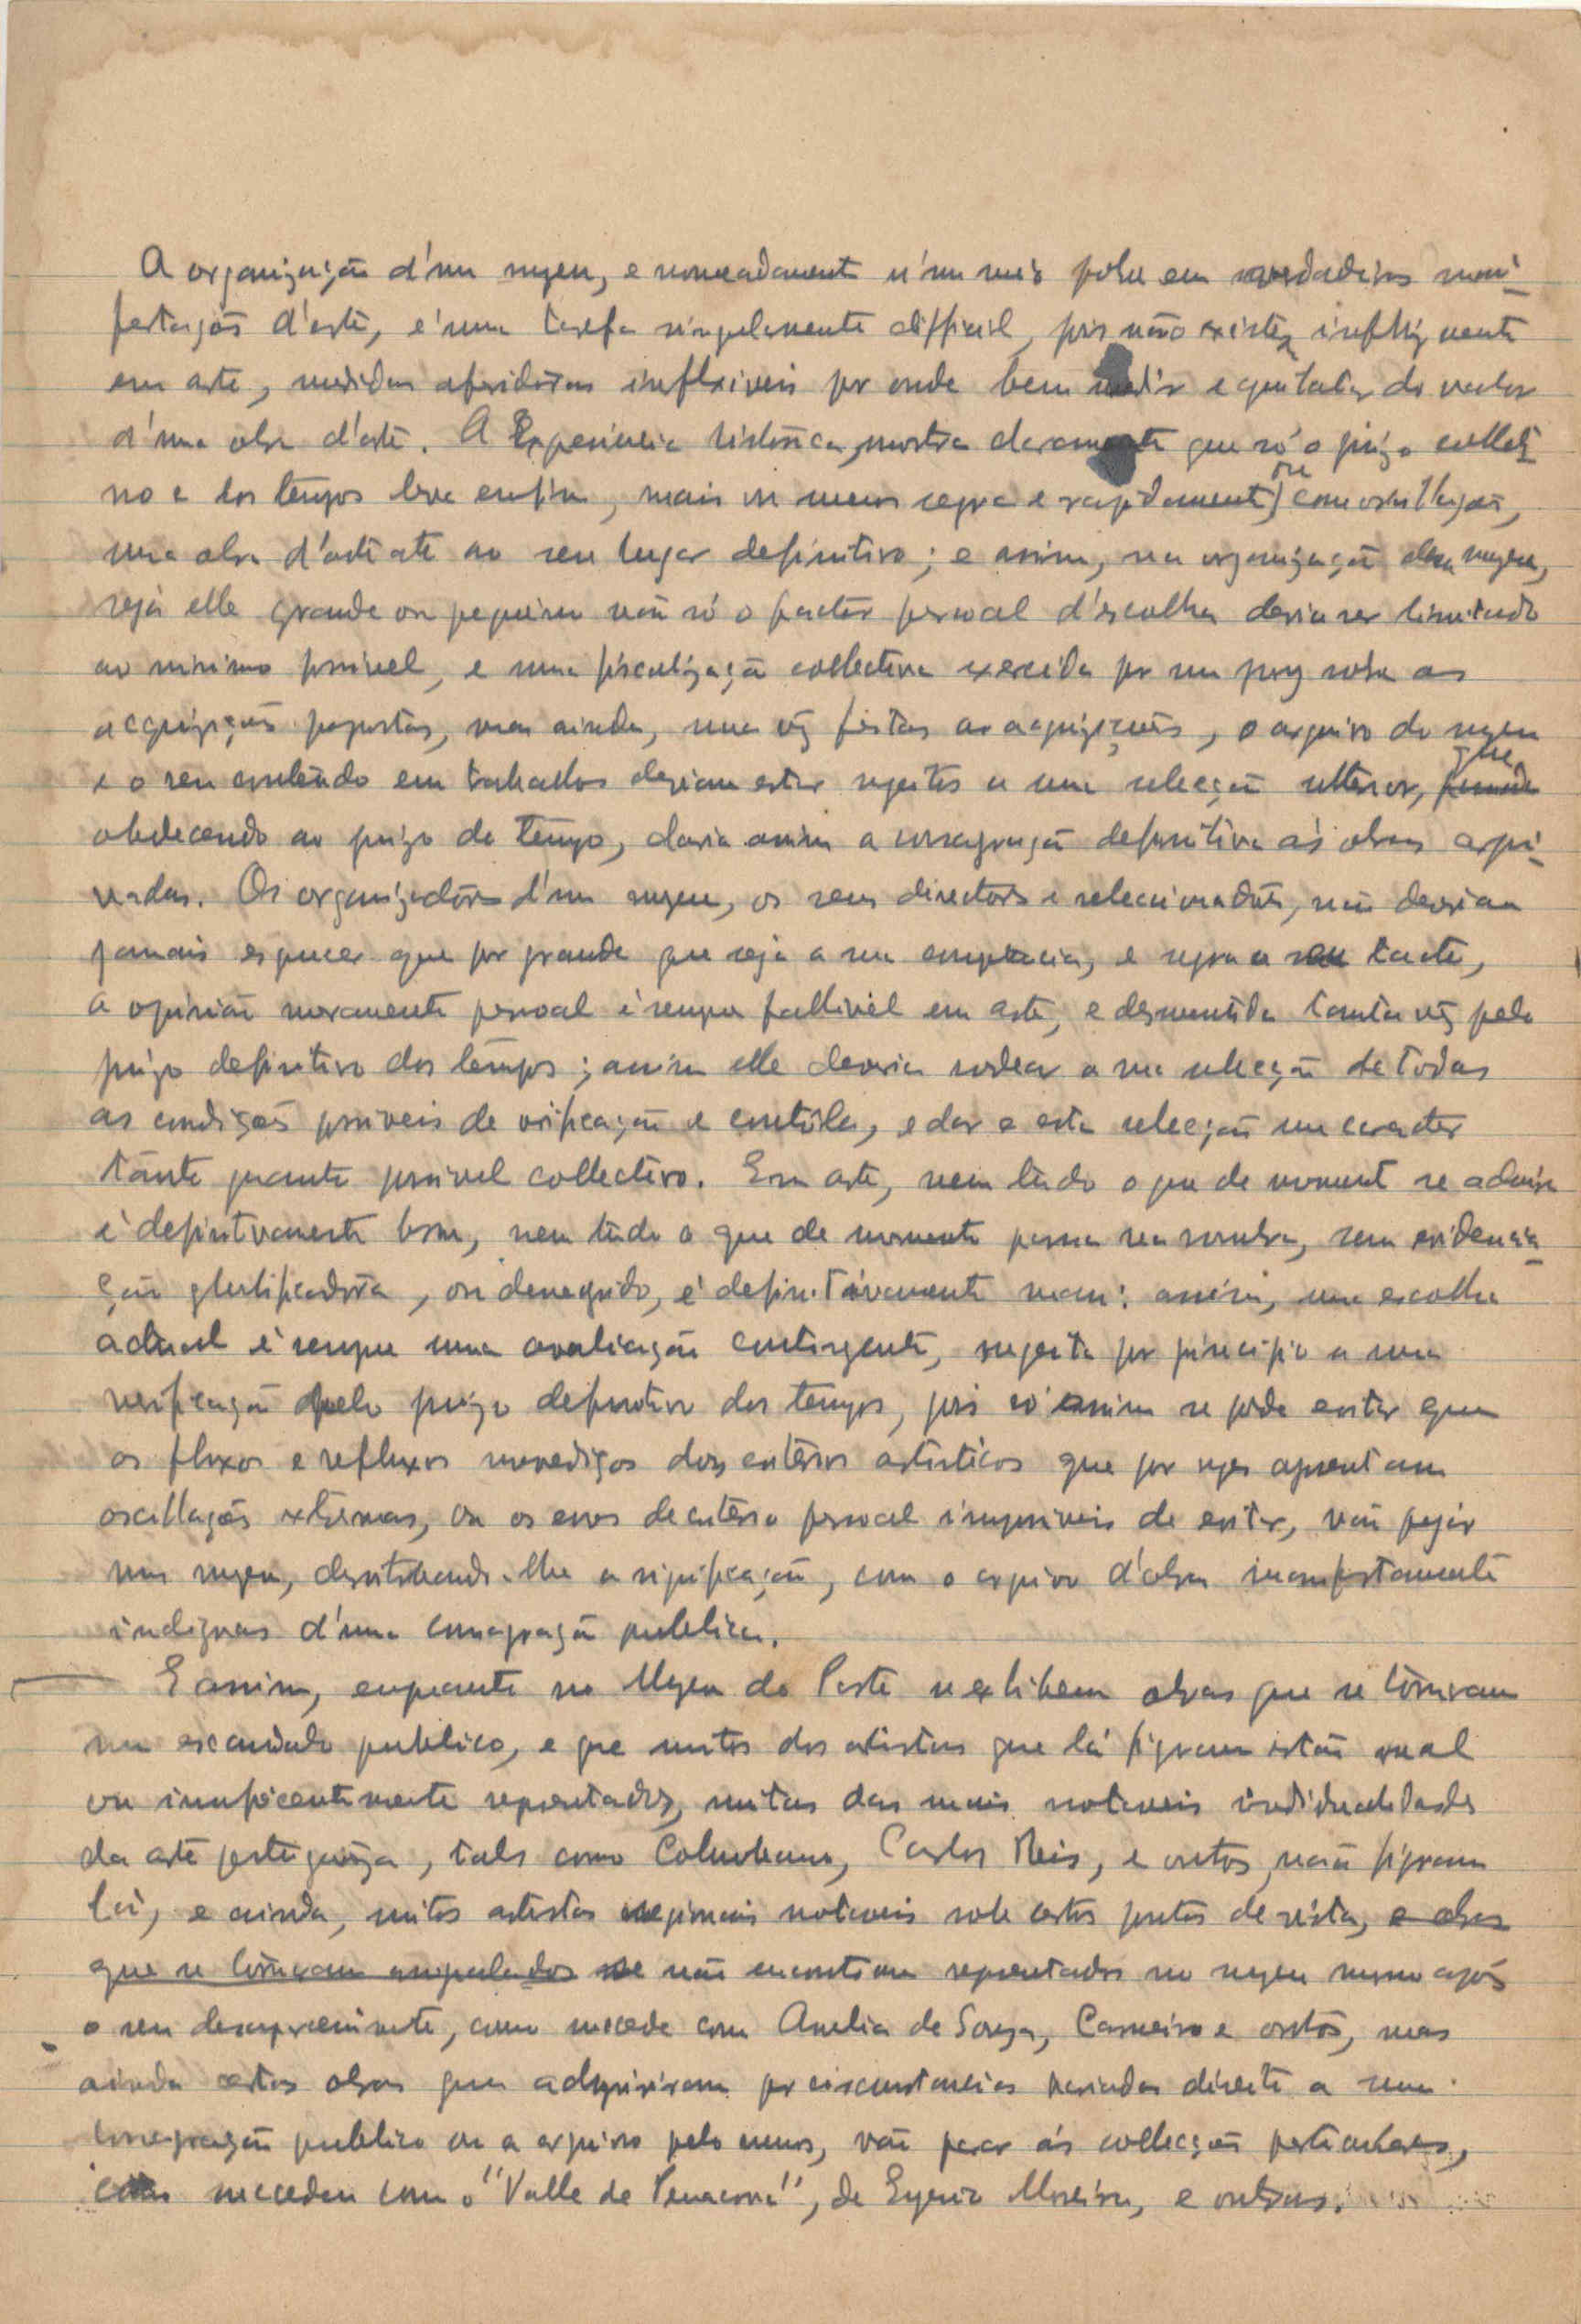 A organização d'um muzeu, e nomeadamente n'um meio pobre em verdadeiras mani-
festações d'arte, é uma tarefa singularmente difficil, pois não existem infelizmente
em arte, medidas aferidoras inflexiveis por onde bem medir e aquilatar do valor
d'uma obra d'arte. A Experiencia historica, mostra claramente que só o juizo collecti
vo e dos tempos leva enfim, mais ou menos segura e rapidamente, ou com oscillações,
uma obra d'arte até ao seu lugar definitivo; e assim, na organização d'um muzeu,
seja elle grande ou pequeno não só o factor pessoal d'escolha devia ser limitado
ao minimo possivel, e uma fiscalização collectiva exercida por um jury sobre as
acquizições propostas, mas ainda, uma vez feitas as acquizições, o arquivo do muzeu
e o seu conteúdo em trabalhos deviam estar sujeitos a uma selecção ulterior, que
obedecendo ao juizo do tempo, daria assim a consagração definitiva ás obras arqui-
vadas. Os organizadores d'um muzeu, os seus directores e seleccionadores, não deveriam
jamais esquecer que por grande que seja a sua competencia, e seguro o seu tacto,
a opinião meramente pessoal é sempre fallivel em arte, e desmentida tanta vez pelo
juizo definitivo dos tempos; assim elle deveria rodear a sua selecção de todas
as condições possiveis de verificação e contrôle, e dar a esta selecção um caracter
tanto quanto possivel collectivo. Em arte, nem tudo o que de momento se admira
é definitivamente bom, nem tudo o que de momento passa na sombra, sem evidencia
ção glorificadora, ou denegrido, é definitivamente mau: assim, uma escolha
actual é sempre uma avaliação contingente, sujeita por principio a uma
verificação pelo juizo definitivo dos tempos, pois só assim se pode evitar que
os fluxos e refluxos movediços dos criterios artisticos que por vezes apresentam
oscillações extremas, ou os erros de criterio pessoal impossiveis de evitar, vão pejar
um muzeu, desvirtuando-lhe a significação, com o arquivo d'obras manifestamente
indignas d'uma consagração publica.
E assim, enquanto no Muzeu do Porto se exhibem obras que se tornaram
um escandalo publico, e que muitos dos artistas que lá figuram estão mal
ou insuficientemente representados, muitas das mais notaveis individualidades
da arte portugueza, tales como Columbano, Carlos Reis, e outros, não figuram
lá, e ainda, muitos artistas regionais notaveis sob certos pontos de vista, e obras
que se tornaram se não encontram representados no muzeu mesmo após
o seu desaparecimento, como succede com Amelia de Souza, Carneiro e outros, mas
ainda certas obras que adquiriram por circunstancias variadas direito a uma
consagração publica ou a arquivo pelo menos, vão parar ás collecções particulares,
como succedeu com o "Valle de Penacova", de Eugenio Moreira, e outras.